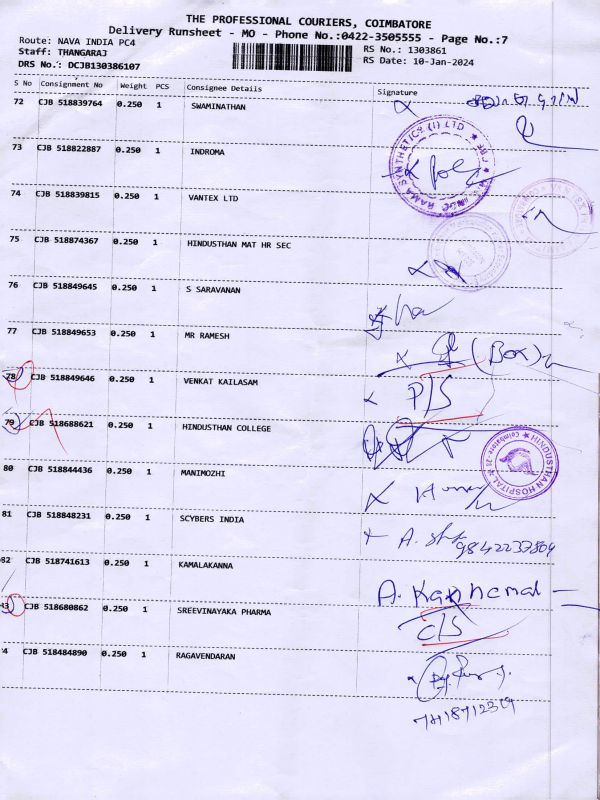 THE PROFESSIONAL COURIERS, COIMBATORE
Delivery Runsheet - MO - Phone No.:0422-3505555 - Page No.:7
Route: NAVA INDIA PC4
RS No.: 1303861
Staff: THANGARAJ
RS Date: 10-Jan-2024
DRS No.: DCJB130386107
S No Consignment No Weight PCS Consignee Details Signature
72 CJB 518839764 0.250 1 SWAMINATHAN
73 CJB 518822887 0.250 1 INDROMA
RAMA SYNTHETICS (I) LTD
74 CJB 518839815 0.250 1 VANTEX LTD
75 CJB 518874367 0.250 1 HINDUSTHAN MAT HR SEC
76 CJB 518849645 0.250 1 S SARAVANAN
77 CJB 518849653 0.250 1 MR RAMESH
(Box)
78 CJB 518849646 0.250 1 VENKAT KAILASAM
P/S
79 CJB 518688621 0.250 1 HINDUSTHAN COLLEGE
HINDUSTHAN HOSPITAL
Coimbatore-28
80 CJB 518844436 0.250 1 MANIMOZHI
81 CJB 518848231 0.250 1 SCYBERS INDIA
A.
82 CJB 518741613 0.250 1 KAMALAKANNA
A.
83 CJB 518680862 0.250 1 SREEVINAYAKA PHARMA
C/S
4 CJB 518484890 0.250 1 RAGAVENDARAN